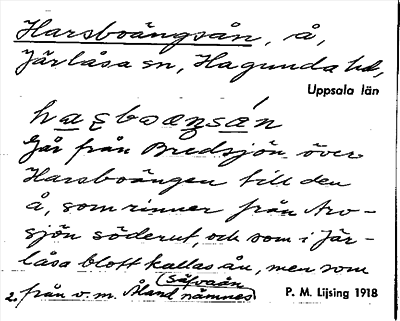 Harsboängsån, å,
Järlåsa sn, Hagunda hd,
Uppsala län
Går från Bredsjön över
Harsboängen till den
å, som rinner från Aro-
sjön söderut, och som i Jär-
låsa blott kallas ån, men som
Sävaån
2. från v. m. Åland nämnes
P. M. Lijsing 1918